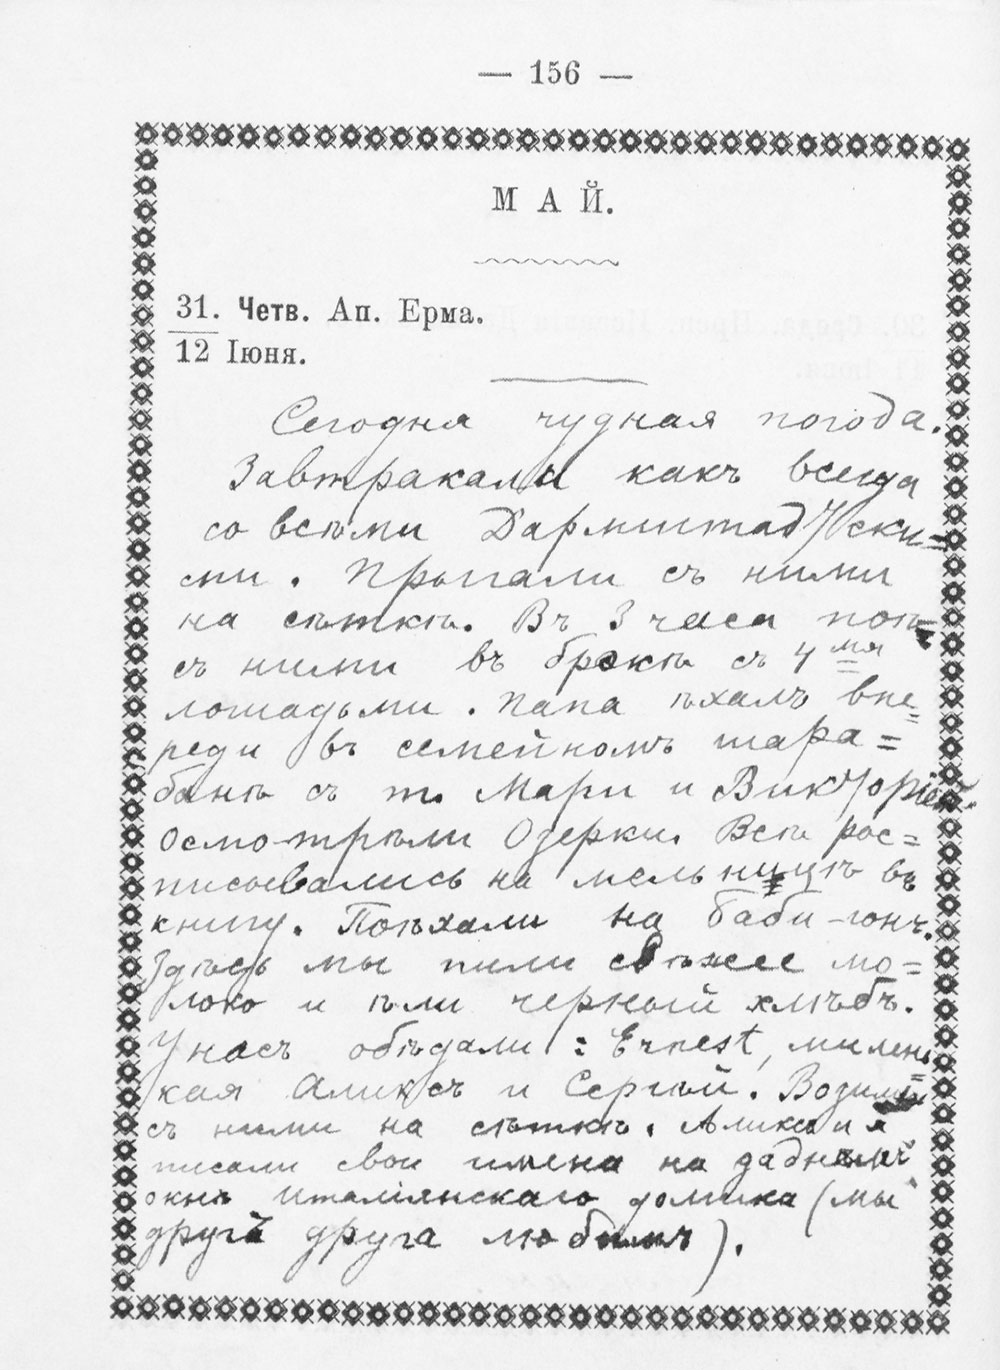 — 156 —
МАЙ.
31. Четв. Ап. Ерма.
12 Іюня.
Сегодня чудная погода.
Завтракали какъ всегда
со всѣми Дармштадтски=
ми. Прыгали съ ними
на сѣткѣ. Въ 3 часа поѣ=
съ ними въ брэкѣ съ 4мя
лошадьми. Папа ѣхалъ впе=
реди въ семейномъ шара=
банѣ съ т. Мари и Викторіей.
Осмотрѣли Озерки. Всѣ рос=
писывались на мельницѣ въ
книгу. Поѣхали на Баби-гонъ.
Здѣсь мы пили свѣжее мо=
локо и ѣли черный хлѣбъ.
У насъ обѣдали: Ernest, милень=
кая Аликсъ и Сергѣй. Возились
съ ними на сѣткѣ. Аликсъ и я
писали свои имена на заднемъ
окнѣ италіянскаго домика (мы
другъ друга любимъ).